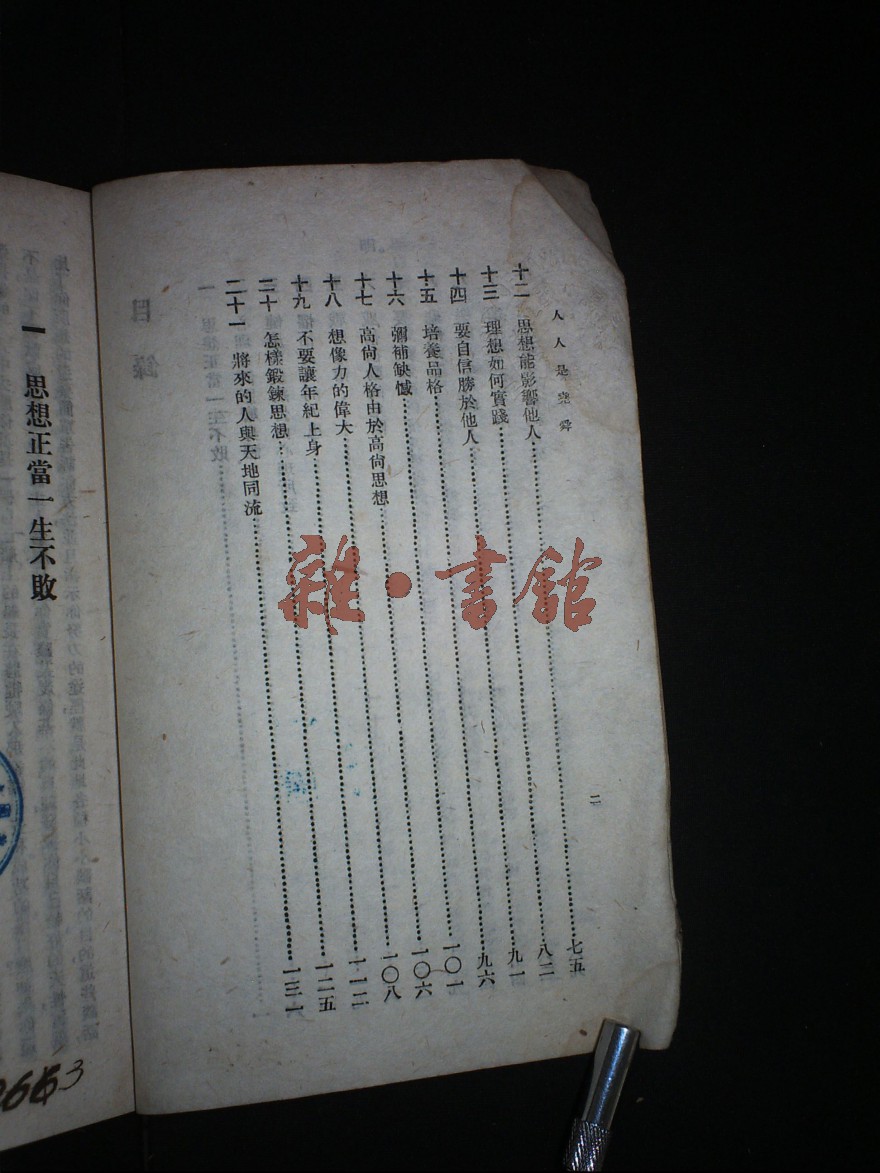 人人是堯舜
二
十二 思想能影響他人 七五
十三 理想如何實踐 八二
十四 要自信勝於他人 九一
十五 培養品格 九六
十六 彌補缺憾 一〇一
十七 高尙人格由於高尙思想 一〇六
十八 想像力的偉大 一〇八
十九 不要讓年紀上身 一一二
二十 怎樣鍛鍊思想 一二五
二十一 將來的人與天地同流 一三一
一 思想正當一生不敗
雜·書館